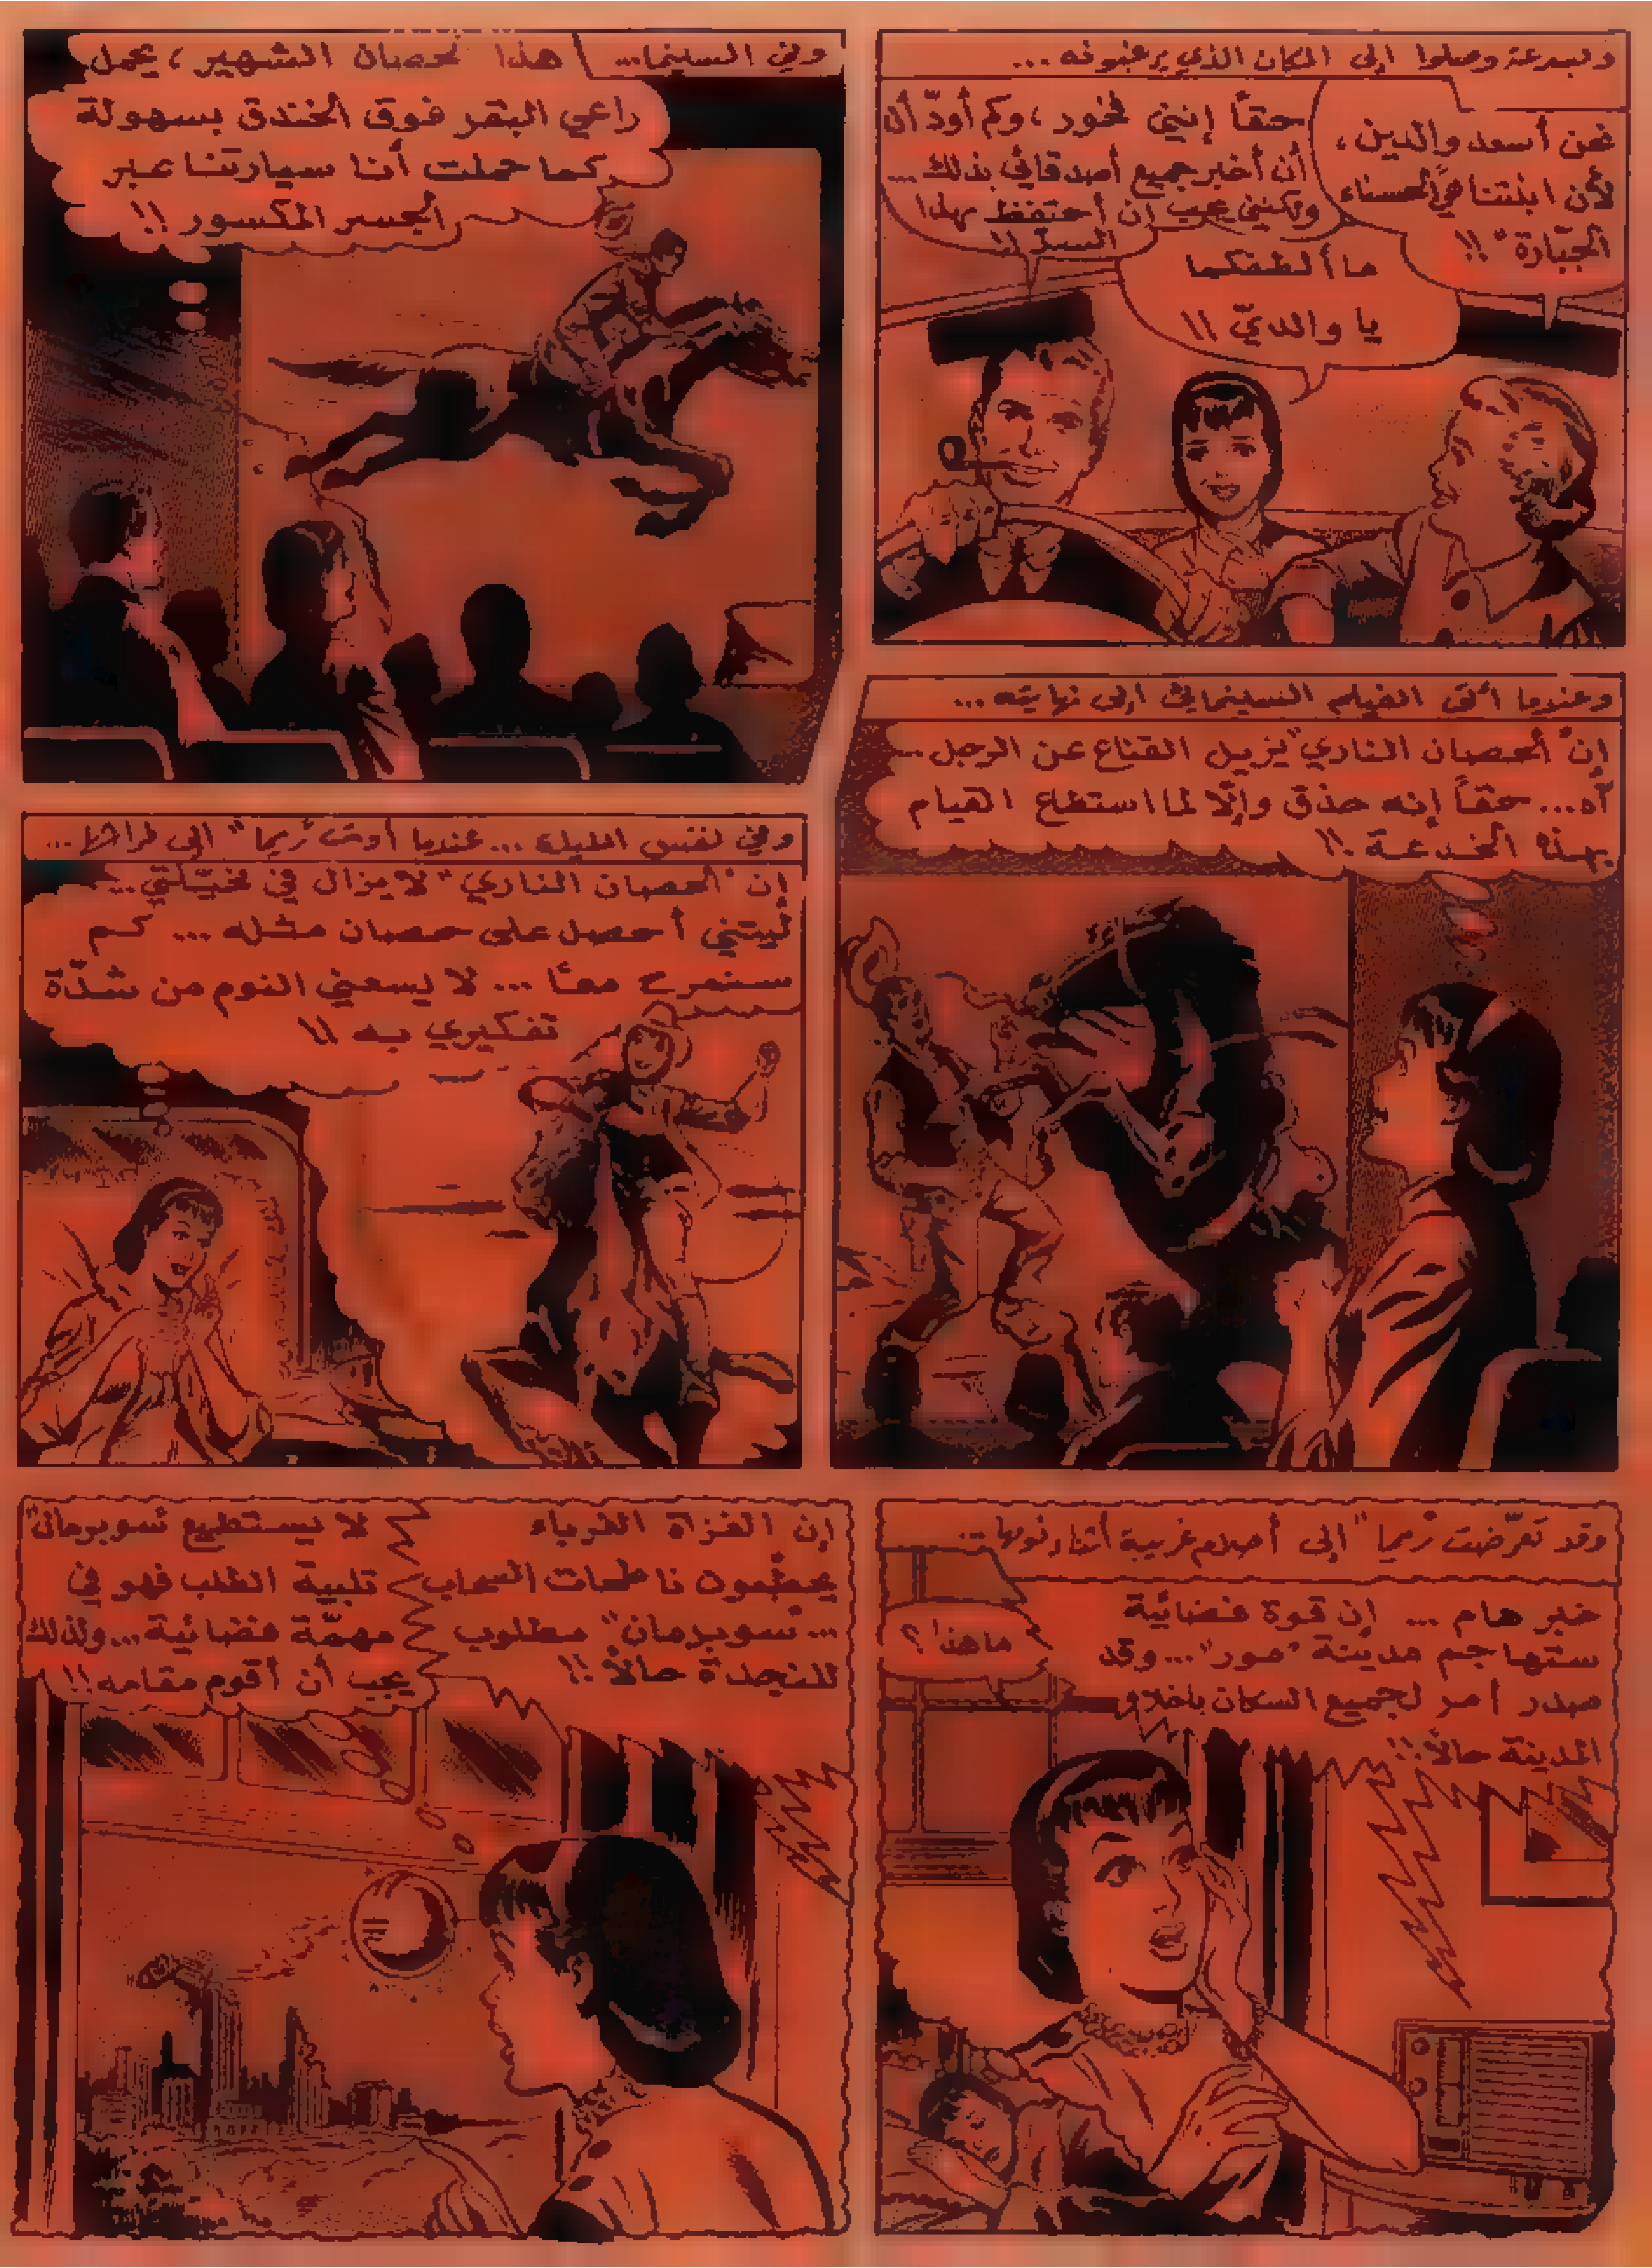 ولبسرعة وصلوا إلى المكان الذي يرغبونه ...
نحن أسعد والدين ،
لأن ابنتنا هي "الحسناء
الجبّارة" !!
حقاً إنني فخور ، وكم أودّ أن
أن أخبر جميع أصدقائي بذلك ...
ولكنني يجب إن أحتفظ بهذا
السرّ !!
ما ألطفكما
يا والديّ !!
وفي السينما ...
هذا الحصان الشهير ، يحمل
راعي البقر فوق الخندق بسهولة
كما حملت أنا سيارتنا عبر
الجسر المكسور !!
وعندما أتى الفيلم السينمائي إلى نهايته ...
إنّ "الحصان الناري" يزيل القناع عن الرجل ...
آه ... حقاً إنه حذق وإلّا لما استطاع القيام
بهذه الخدعة !!
وفي نفس الليلة ... عندما أوت "ريما" إلى فراشها ...
إن "الحصان الناري" لا يزال في مخيّلتي ...
ليتني أحصل على حصان مثله ... كم
سنمرح معاً ... لا يسعني النوم من شدّة
تفكيري به !!
وقد تعرّضت "ريما" إلى أحلام غريبة أثناء نومها ...
خبر هام ... إن قوة فضائية
ستهاجم مدينة "مور" ... وقد
صدر أمر لجميع السكان بإخلاء
المدينة حالاً !!
ما هذا ؟
إن الغزاة الغرباء
يحطّمون ناطحات السحاب
... "سوبرمان" مطلوب
للنجدة حالاً !!
لا يستطيع "سوبرمان"
تلبية الطلب فهو في
مهمّة فضائية ... ولذلك
يجب أن أقوم مقامه !!